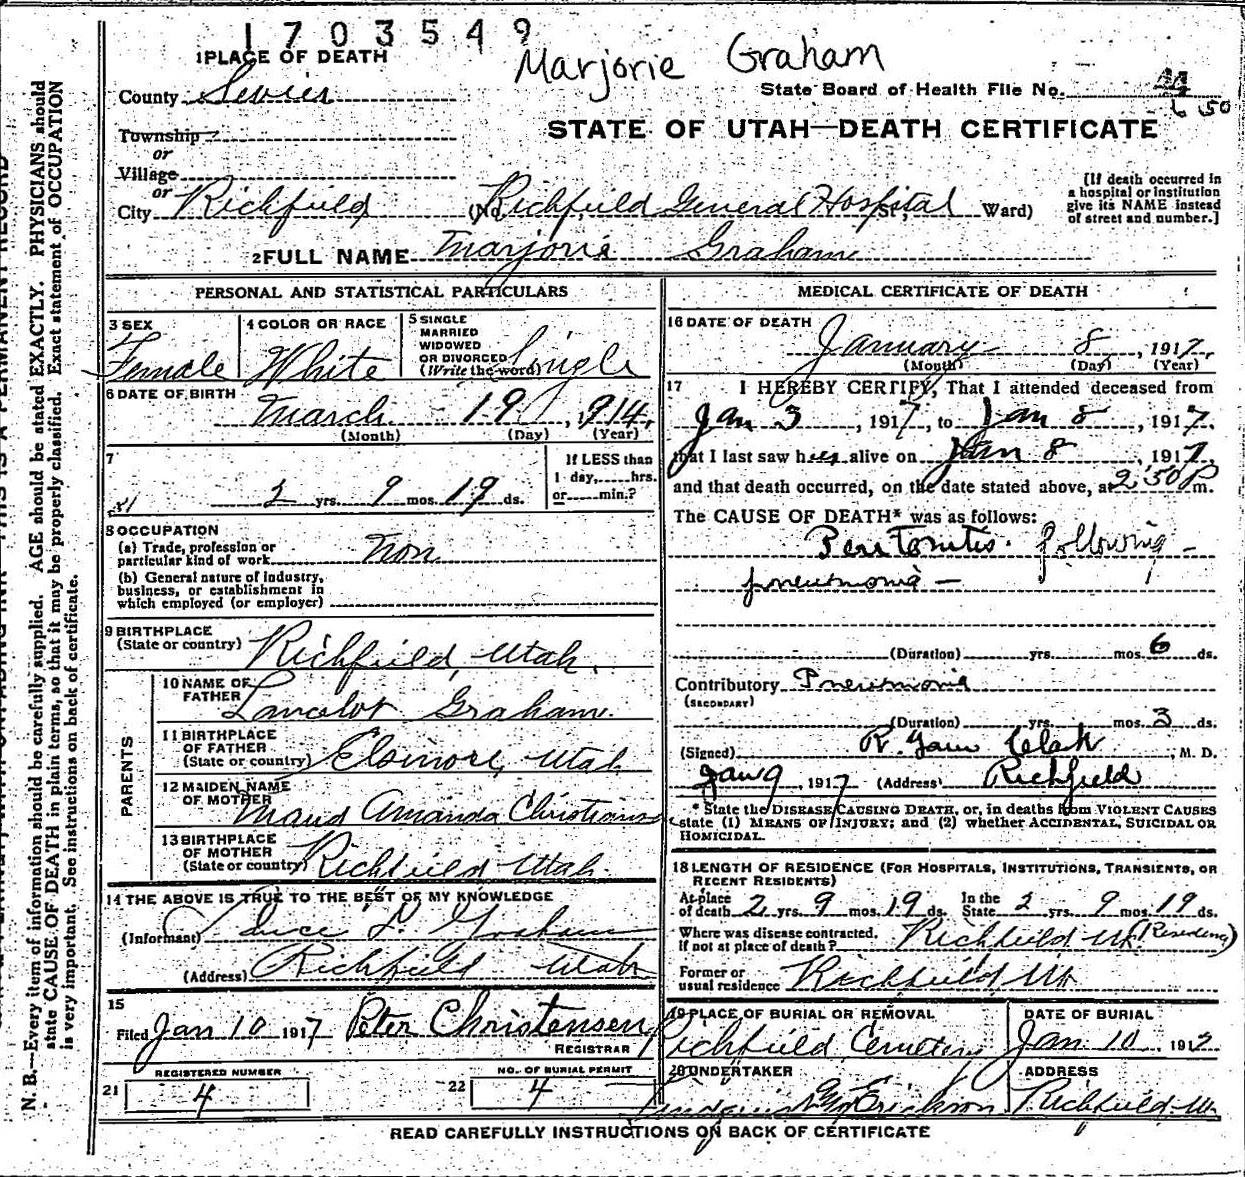 1703549
Marjorie Graham
1 PLACE OF DEATH
County Sevier
State Board of Health File No.
Township
or
Village
or
City Richfield
STATE OF UTAH—DEATH CERTIFICATE
(No. Richfield General Hospital St.; Ward)
[If death occurred in
a hospital or institution
give its NAME instead
of street and number.]
2 FULL NAME Marjorie Graham
PERSONAL AND STATISTICAL PARTICULARS
3 SEX
Female
4 COLOR OR RACE
White
5 SINGLE
MARRIED
WIDOWED
OR DIVORCED
(Write the word) Single
6 DATE OF BIRTH
March 19, 914
(Month) (Day) (Year)
7
2 yrs. 9 mos. 19 ds.
If LESS than
1 day, hrs.
or min.?
8 OCCUPATION
(a) Trade, profession or
particular kind of work Non
(b) General nature of industry,
business, or establishment in
which employed (or employer)
9 BIRTHPLACE
(State or country) Richfield, Utah.
PARENTS
10 NAME OF
FATHER Lancelot Graham.
11 BIRTHPLACE
OF FATHER
(State or country) Elsinore, Utah
12 MAIDEN NAME
OF MOTHER Maud Amanda
13 BIRTHPLACE
OF MOTHER
(State or country) Richfield Utah.
14 THE ABOVE IS TRUE TO THE BEST OF MY KNOWLEDGE
(Informant) Graham
(Address) Richfield Utah
15
Filed Jan 10 1917 Peter Christensen
REGISTRAR
21 REGISTERED NUMBER
4
22 NO. OF BURIAL PERMIT
4
MEDICAL CERTIFICATE OF DEATH
16 DATE OF DEATH
January 8, 1917,
(Month) (Day) (Year)
17 I HEREBY CERTIFY, That I attended deceased from
Jan 3, 1917, to Jan 8, 1917,
that I last saw her alive on Jan 8, 1917,
and that death occurred, on the date stated above, at 2:50 P m.
The CAUSE OF DEATH* was as follows:
Peritonitis. following
pneumonia
(Duration) yrs. mos. 6 ds.
Contributory Pneumonia
(SECONDARY)
(Duration) yrs. mos. 3 ds.
(Signed) R. M. D.
Jan 9, 1917 (Address) Richfield
* State the DISEASE CAUSING DEATH, or, in deaths from VIOLENT CAUSES
state (1) MEANS OF INJURY; and (2) whether ACCIDENTAL, SUICIDAL OR
HOMICIDAL.
18 LENGTH OF RESIDENCE (FOR HOSPITALS, INSTITUTIONS, TRANSIENTS, OR
RECENT RESIDENTS)
At place
of death 2 yrs. 9 mos. 19 ds. In the State 2 yrs. 9 mos. 19 ds.
Where was disease contracted,
If not at place of death? Richfield Ut (Residence)
Former or
usual residence Richfield Ut
19 PLACE OF BURIAL OR REMOVAL
Richfield Cemetery
DATE OF BURIAL
Jan 10 1917
20 UNDERTAKER
Erickson
ADDRESS
Richfield Ut
READ CAREFULLY INSTRUCTIONS ON BACK OF CERTIFICATE
N. B.—Every item of information should be carefully supplied. AGE should be stated EXACTLY. PHYSICIANS should
state CAUSE OF DEATH in plain terms, so that it may be properly classified. Exact statement of OCCUPATION
is very important. See instructions on back of certificate.